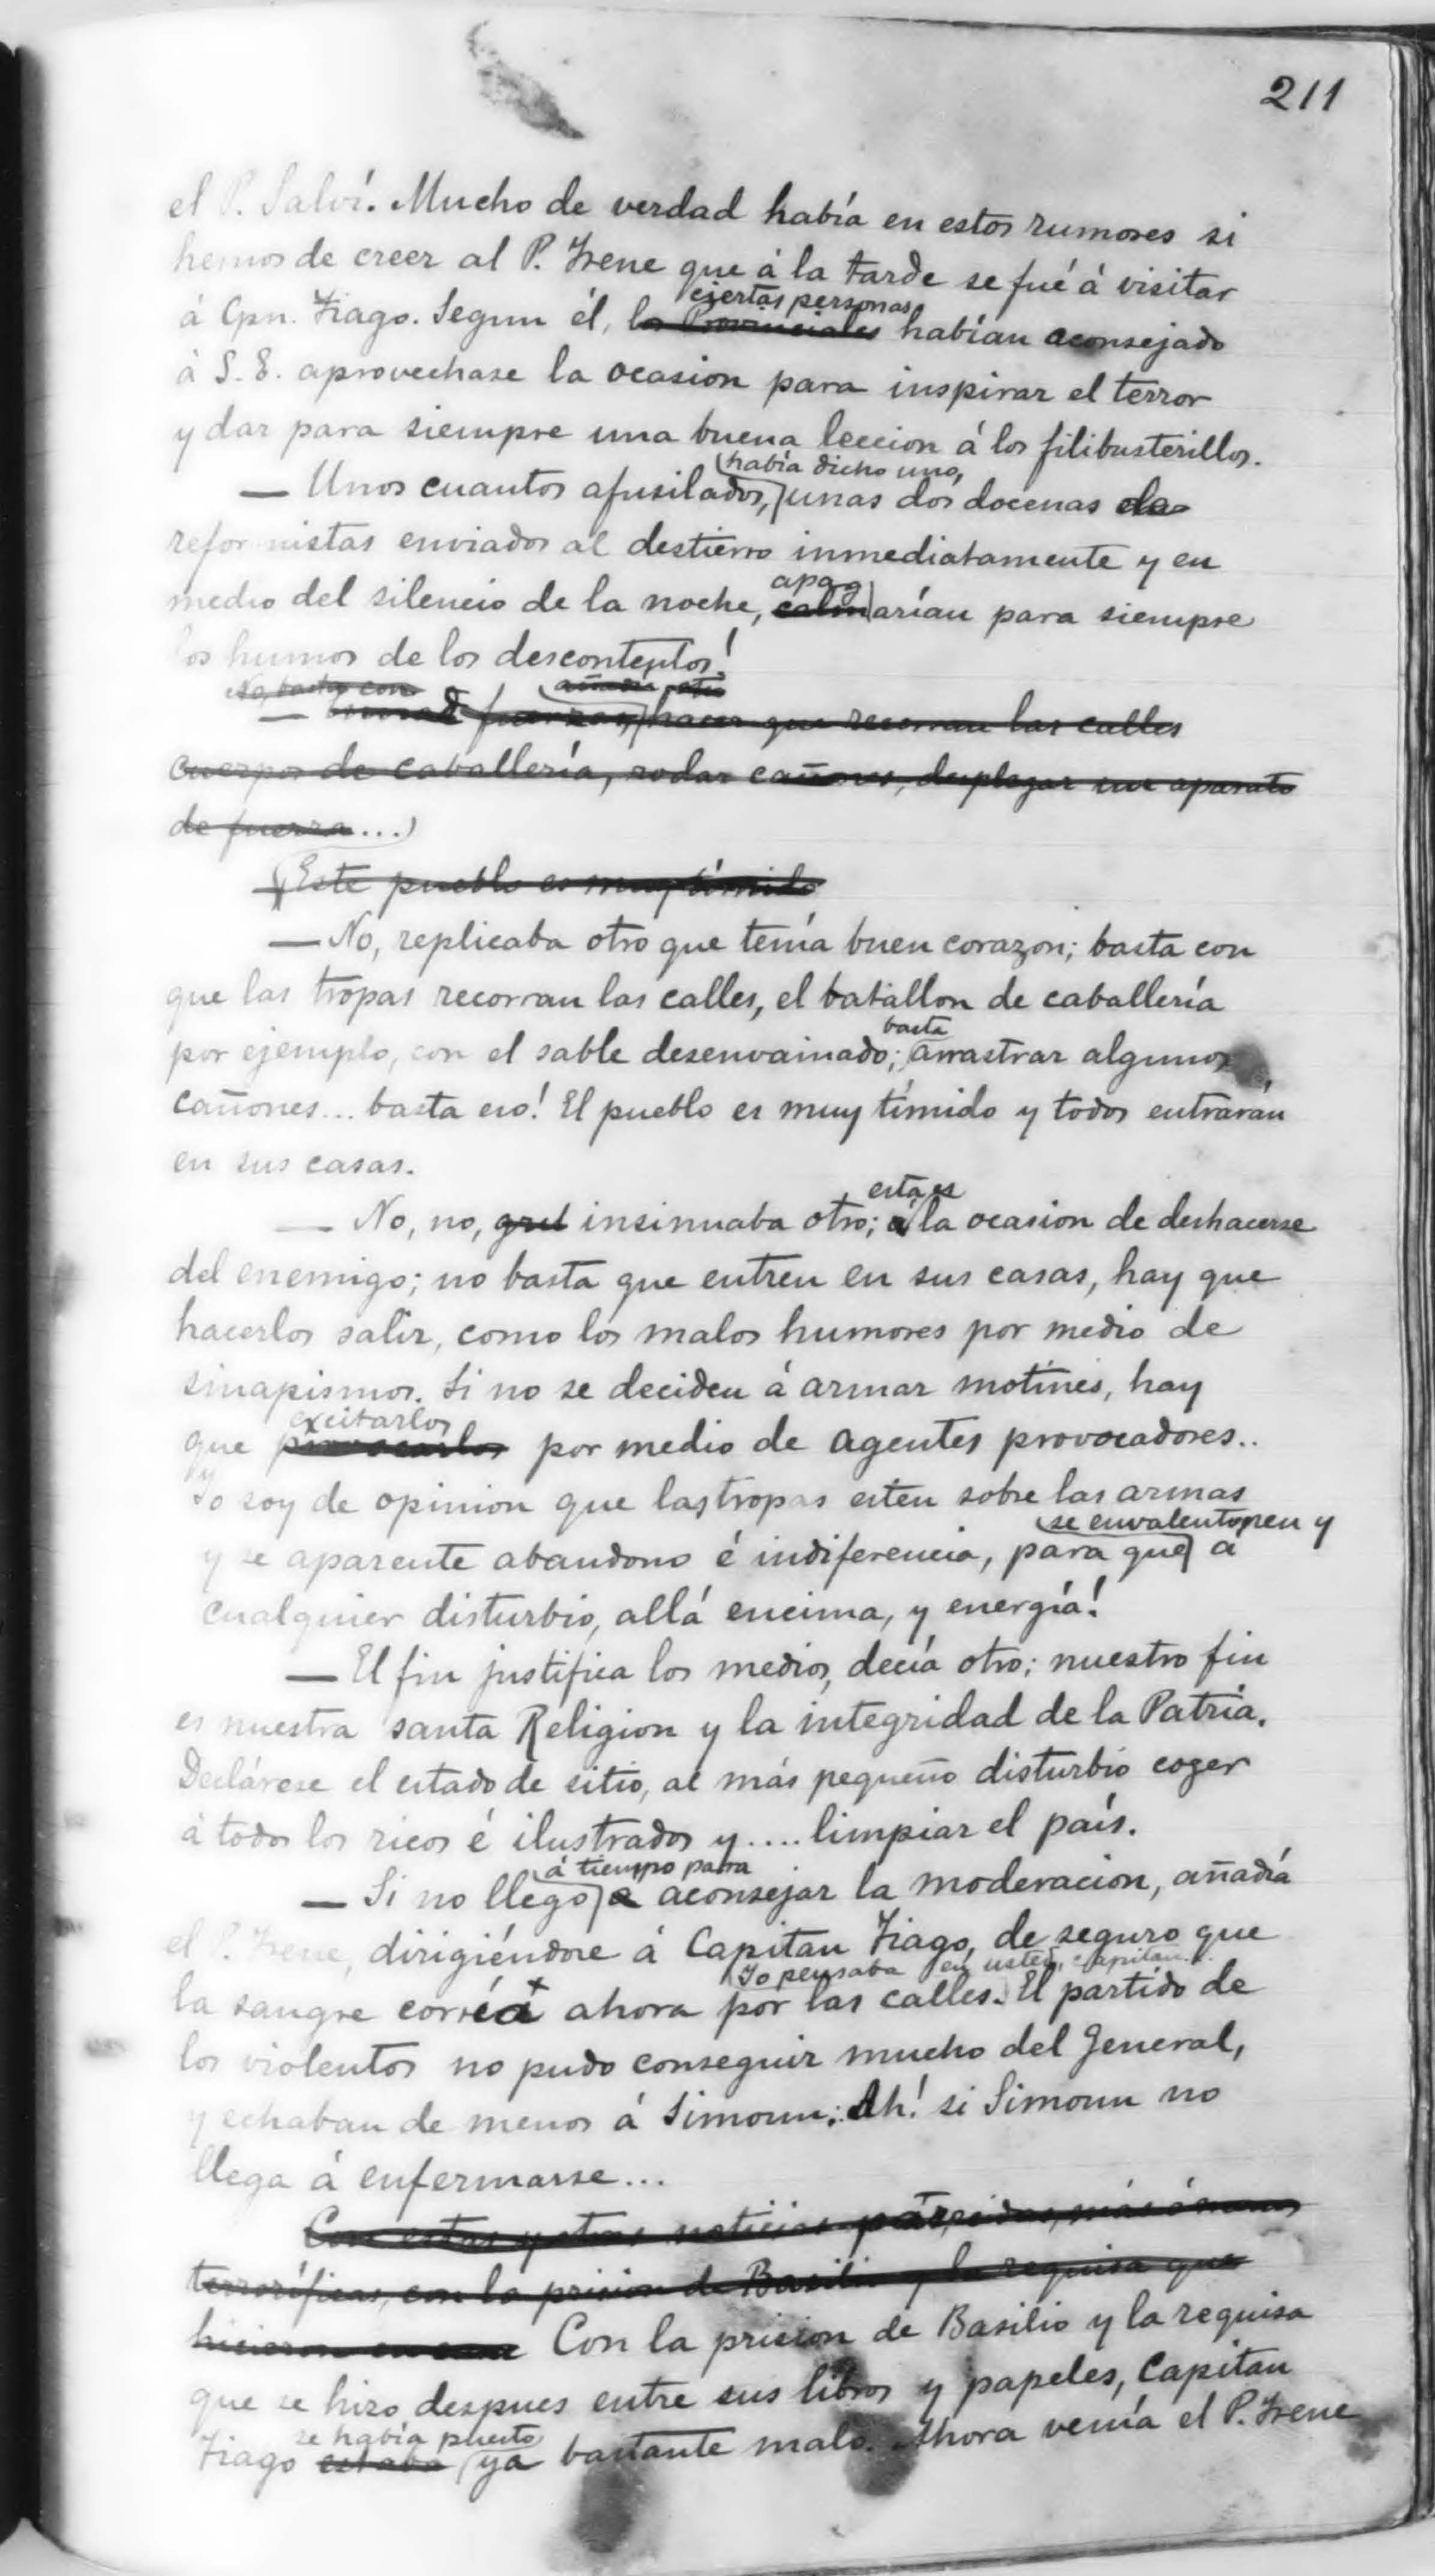 211
el P. Salví. Mucho de verdad había en estos rumores si
hemos de creer al P. Irene que á la tarde se fué á visitar
ciertas personas
á Cpn. Tiago. Segun él, los Provinciales habían aconsejado
á S. E. aprovechase la ocasion para inspirar el terror
y dar para siempre una buena leccion á los filibusterillos.
había dicho uno,
— Unos cuantos afusilados, unas dos docenas de
reformistas enviados al destierro inmediatamente y en
apag
medio del silencio de la noche, calmarían para siempre
los humos de los descontentos!
No, basta con añadía otro
— fuerzas, hacer que recorran las calles
cuerpos de caballería, rodar cañones, desplegar un aparato
de fuerza...
— Este pueblo es muy tímido
— No, replicaba otro que tenía buen corazon; basta con
que las tropas recorran las calles, el batallon de caballería
basta
por ejemplo, con el sable desenvainado; arrastrar algunos
cañones... basta eso! El pueblo es muy tímido y todos entrarán
en sus casas.
esta es
— No, no, insinuaba otro; á la ocasion de deshacerse
del enemigo; no basta que entren en sus casas, hay que
hacerlos salir, como los malos humores por medio de
sinapismos. Si no se deciden á armar motines, hay
excitarlos
que provocarlos por medio de agentes provocadores..
Yo soy de opinion que las tropas esten sobre las armas
se envalentonen y
y se aparente abandono é indiferencia, para que á
cualquier disturbio, allá encima, y energía!
— El fin justifica los medios, decía otro; nuestro fin
es nuestra santa Religion y la integridad de la Patria.
Declárese el estado de sitio, al más pequeño disturbio coger
á todos los ricos é ilustrados y.... limpiar el país.
á tiempo para
— Si no llego á aconsejar la moderacion, añadía
el P. Irene, dirigiéndose á Capitan Tiago, de seguro que
Yo pensaba en usted, capitan...
la sangre corría ahora por las calles. El partido de
los violentos no pudo conseguir mucho del General,
y echaban de menos á Simoun: Ah! si Simoun no
llega á enfermarse...
Con estas y otras noticias parecidas, más ó menos
terroríficas, con la prision de Basilio y la requisa que
hicieron en Con la prision de Basilio y la requisa
que se hizo despues entre sus libros y papeles, Capitan
se había puesto
Tiago estaba ya bastante malo. Ahora venía el P. Irene